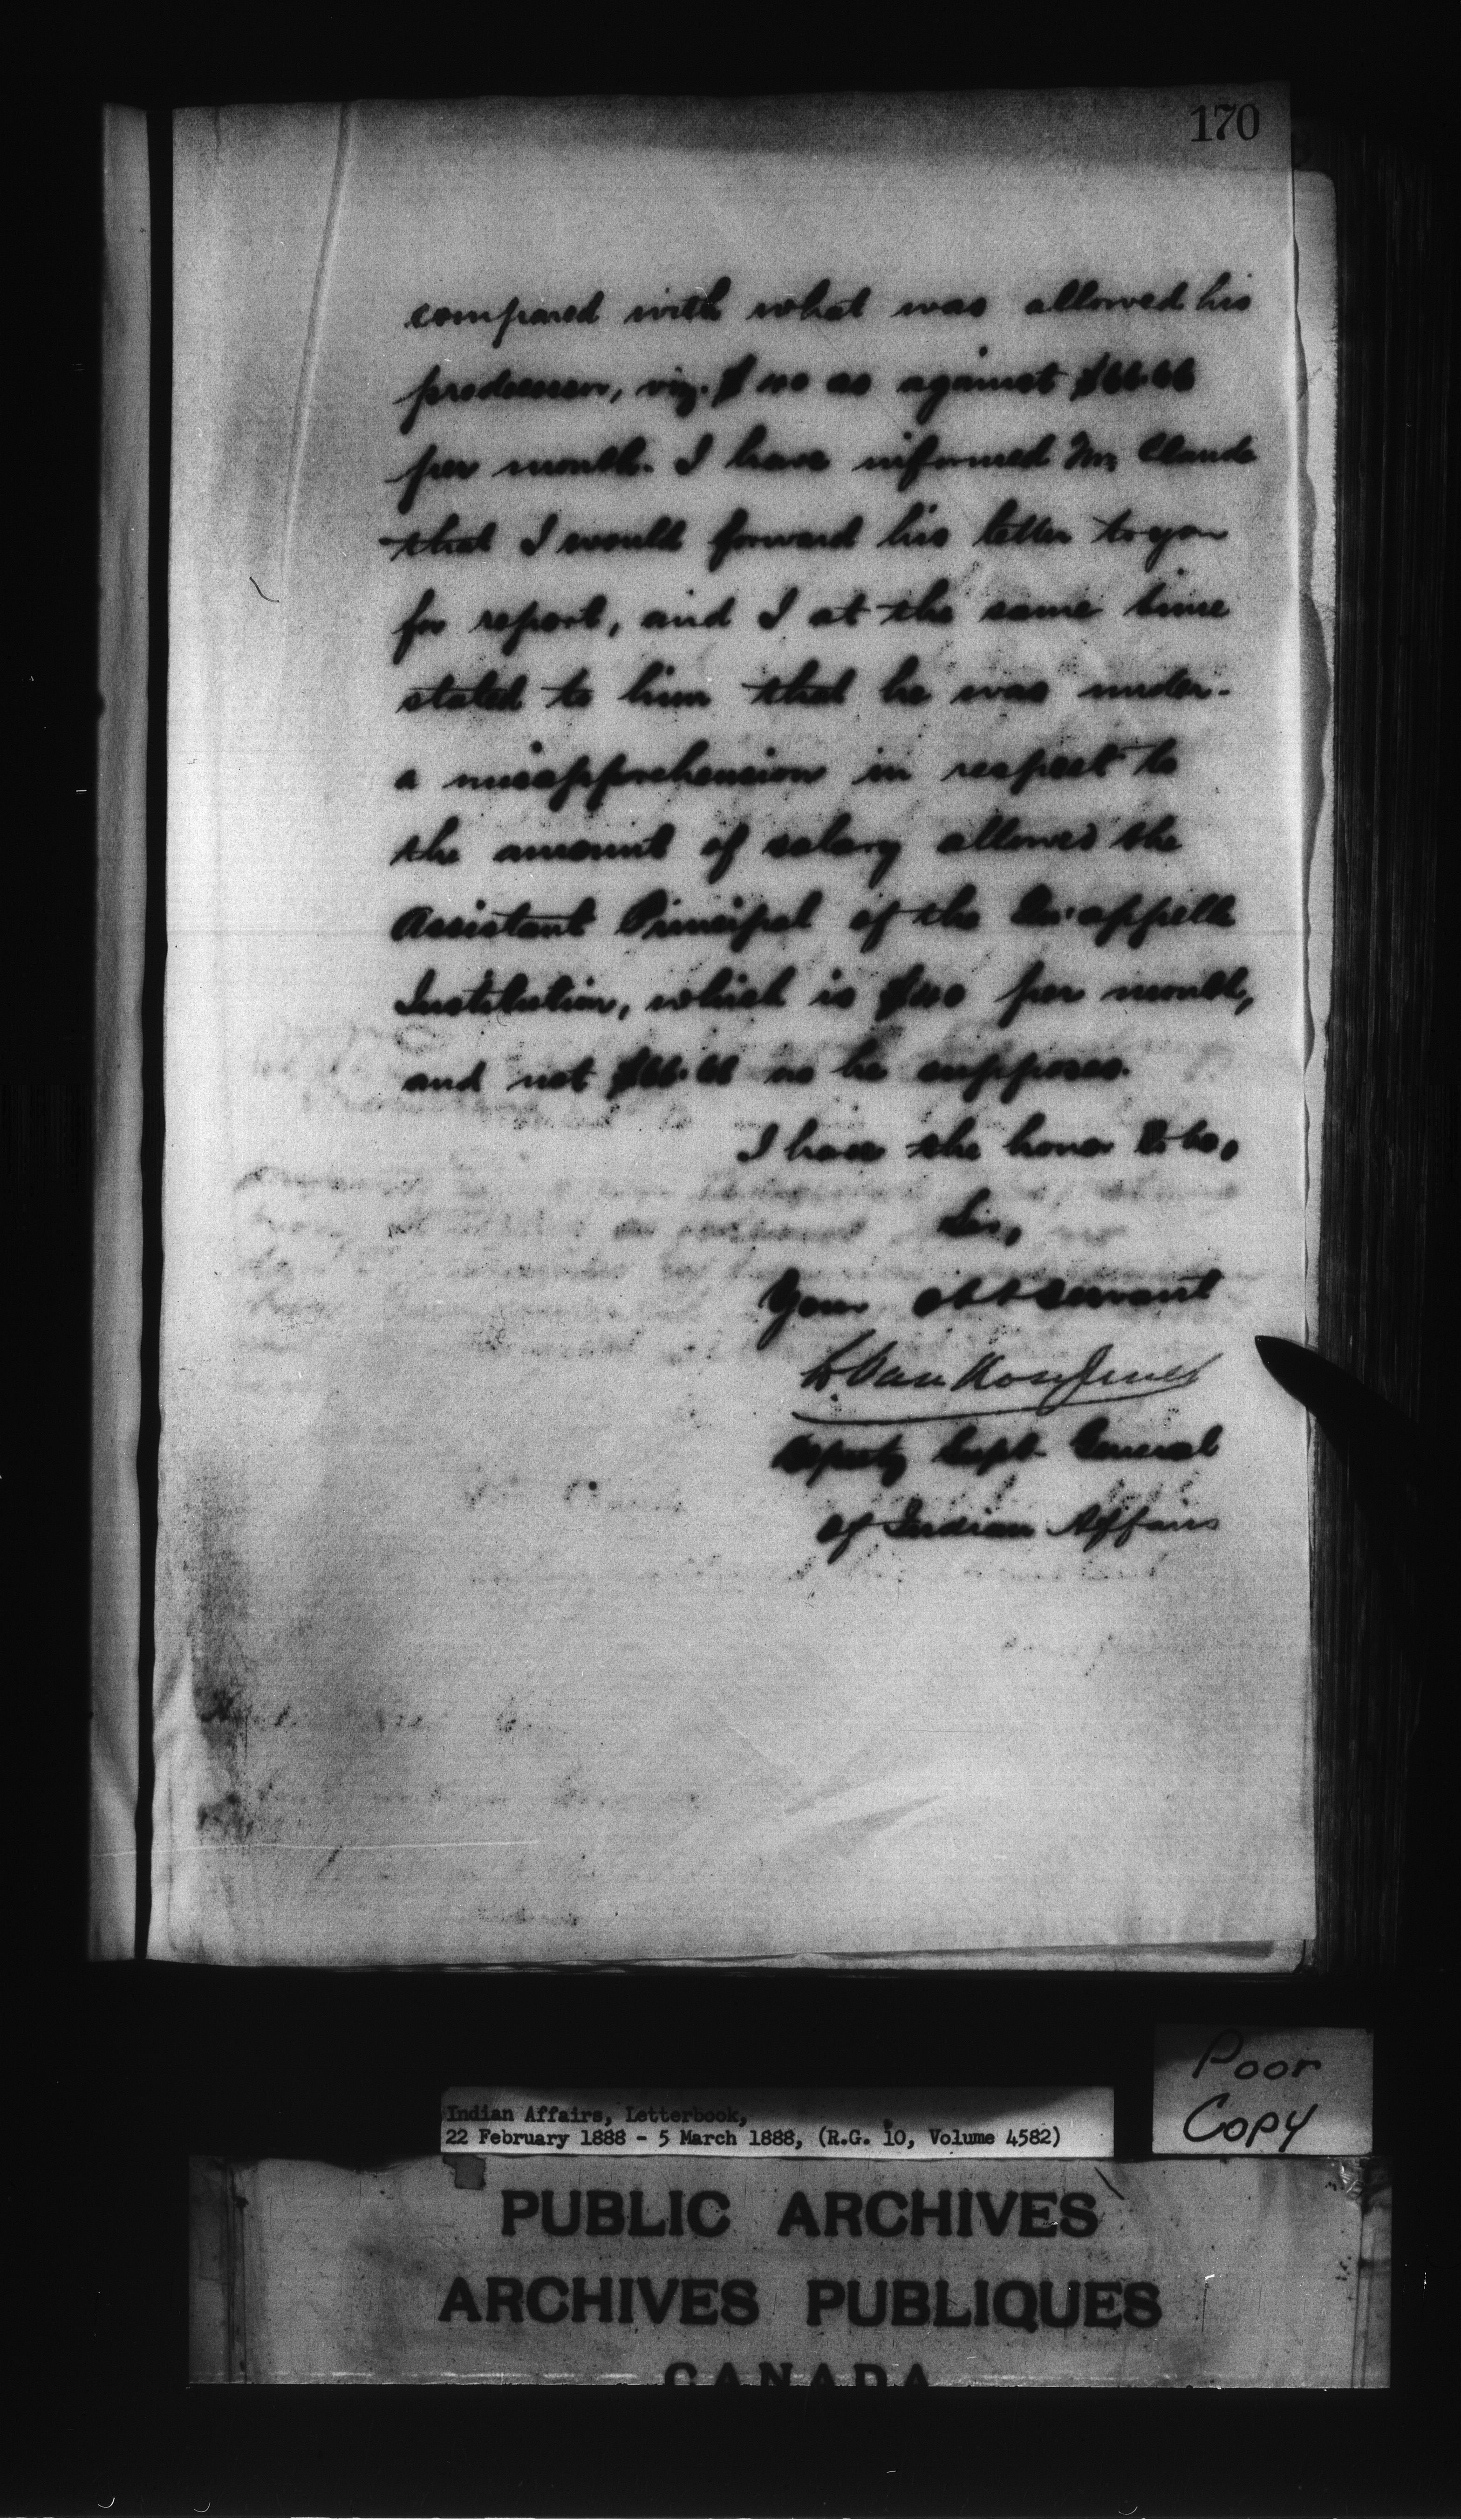 170
compared with what was allowed his
predecessor, viz. $40 as against $66.66
per month. I have informed Mr Claude
that I would forward his letter to you
for report, and I at the same time
stated to him that he was under
a misapprehension in respect to
the amount of salary allowed the
Assistant Principal of the Qu'appelle
Institution, which is $40 per month,
and not $66.66 as he supposes.
I have the honor to be,
Sir,
Your obt servant
L. VanKoughnet
Deputy Supt General
of Indian Affairs
Poor
Copy
Indian Affairs, Letterbook,
22 February 1888 - 5 March 1888, (R.G. 10, Volume 4582)
PUBLIC ARCHIVES
ARCHIVES PUBLIQUES
CANADA